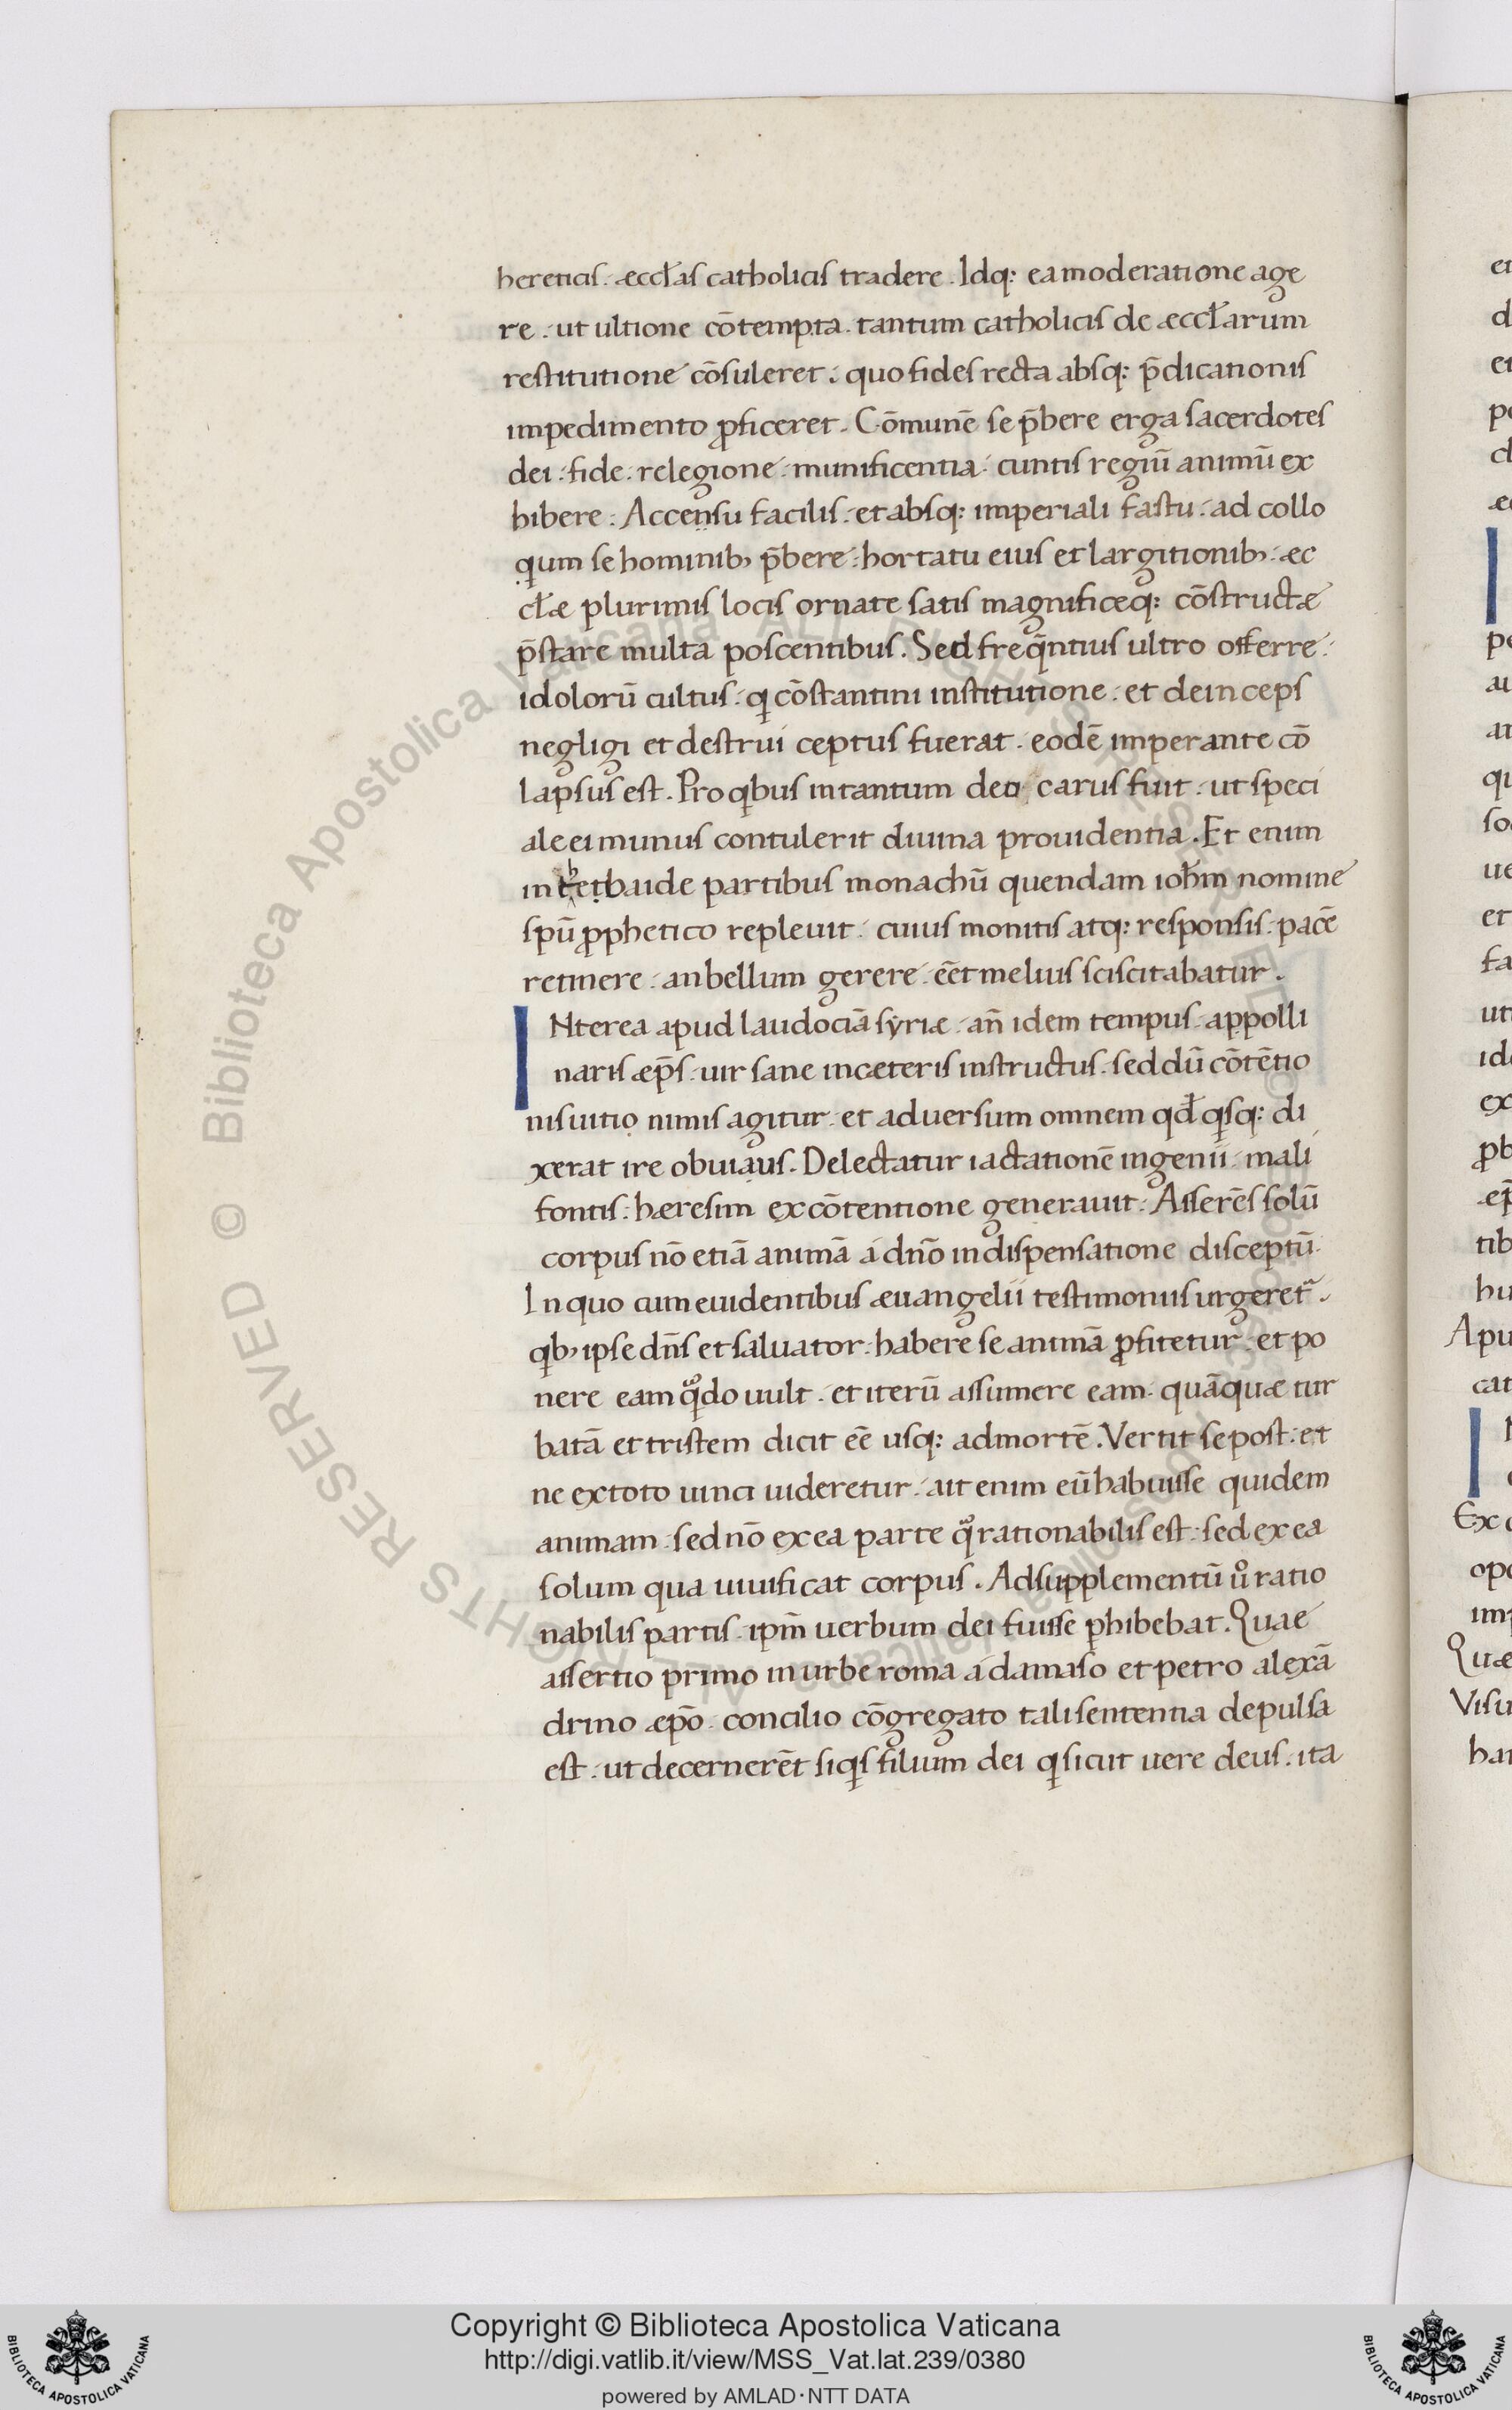 hereticis. æccl̄as catholicis tradere. Idq: ea moderatione age
re. ut ultione cōtempta. tantum catholicis de æccl̄arum
restitutione cōsuleret. quo fides recta absq: p̄dicationis
impedimento ꝓficeret. Cōmunē se p̄bere erga sacerdotes
dei. fide. relegione. munificentia. cuntis regiū animū ex
hibere. Accensu facilis. et absq: imperiali fastu. ad collo
qum se hominib; p̄bere. hortatu eius et largitionib;. æc
cl̄æ plurimis locis ornate satis magnificeq: cōstructæ
p̄stare multa poscentibus. Sed freq̄ntius ultro offerre.
idolorū cultus. qi cōstantini institutione. et deinceps
negligi et destrui ceptus fuerat. eodē imperante cō
lapsus est. Pro qibus in tantum deo carus fuit. ut speci
ale ei munus contulerit diuina prouidentia. Et enim
in thebaide partibus monachū quendam ioh̄m nomine
spū ꝓphetico repleuit. cuius monitis atq: responsis. pacē
retinere. an bellum gerere. eēt melius sciscitabatur.
INterea apud laudociā syriæ. añ idem tempus. appolli
naris æp̄s. uir sane in ceteris instructus. sed dū cōtētio
nis uitio nimis agitur. et aduersum omnem qd̄ qisq: di
xerat ire obuiaus. Delectatur iactationē ingenii. mali
fontis. hæresim ex cōtentione generauit. Asserēs solū
corpus nō etiā animā á dn̄o in dispensatione disceptū.
In quo cum euidentibus æuangelii testimoniis urgeret.
qib; ipse dn̄s et saluator. habere se animā ꝓfitetur. et po
nere eam qn̄do uult. et iterū assumere eam. quāquæ tur
batā et tristem dicit eē usq: ad mortē. Vertit se post. et
ne ex toto uinci uideretur. ait enim eū habuisse quidem
animam. sed nō ex ea parte qͦ rationabilis est. sed ex ea
solum qua uiuificat corpus. Ad supplementū uͦ ratio
nabilis partis. ipm̄ uerbum dei fuisse ꝑhibebat. Quae
assertio primo in urbe roma á damaso et petro alexā
drino æpō. concilio cōgregato tali sententia depulsa
est. ut decernerēt siqis filium dei qi sicut uere deus. ita
Copyright © Biblioteca Apostolica Vaticana
http://digi.vatlib.it/view/MSS_Vat.lat.239/0380
powered by AMLAD·NTT DATA